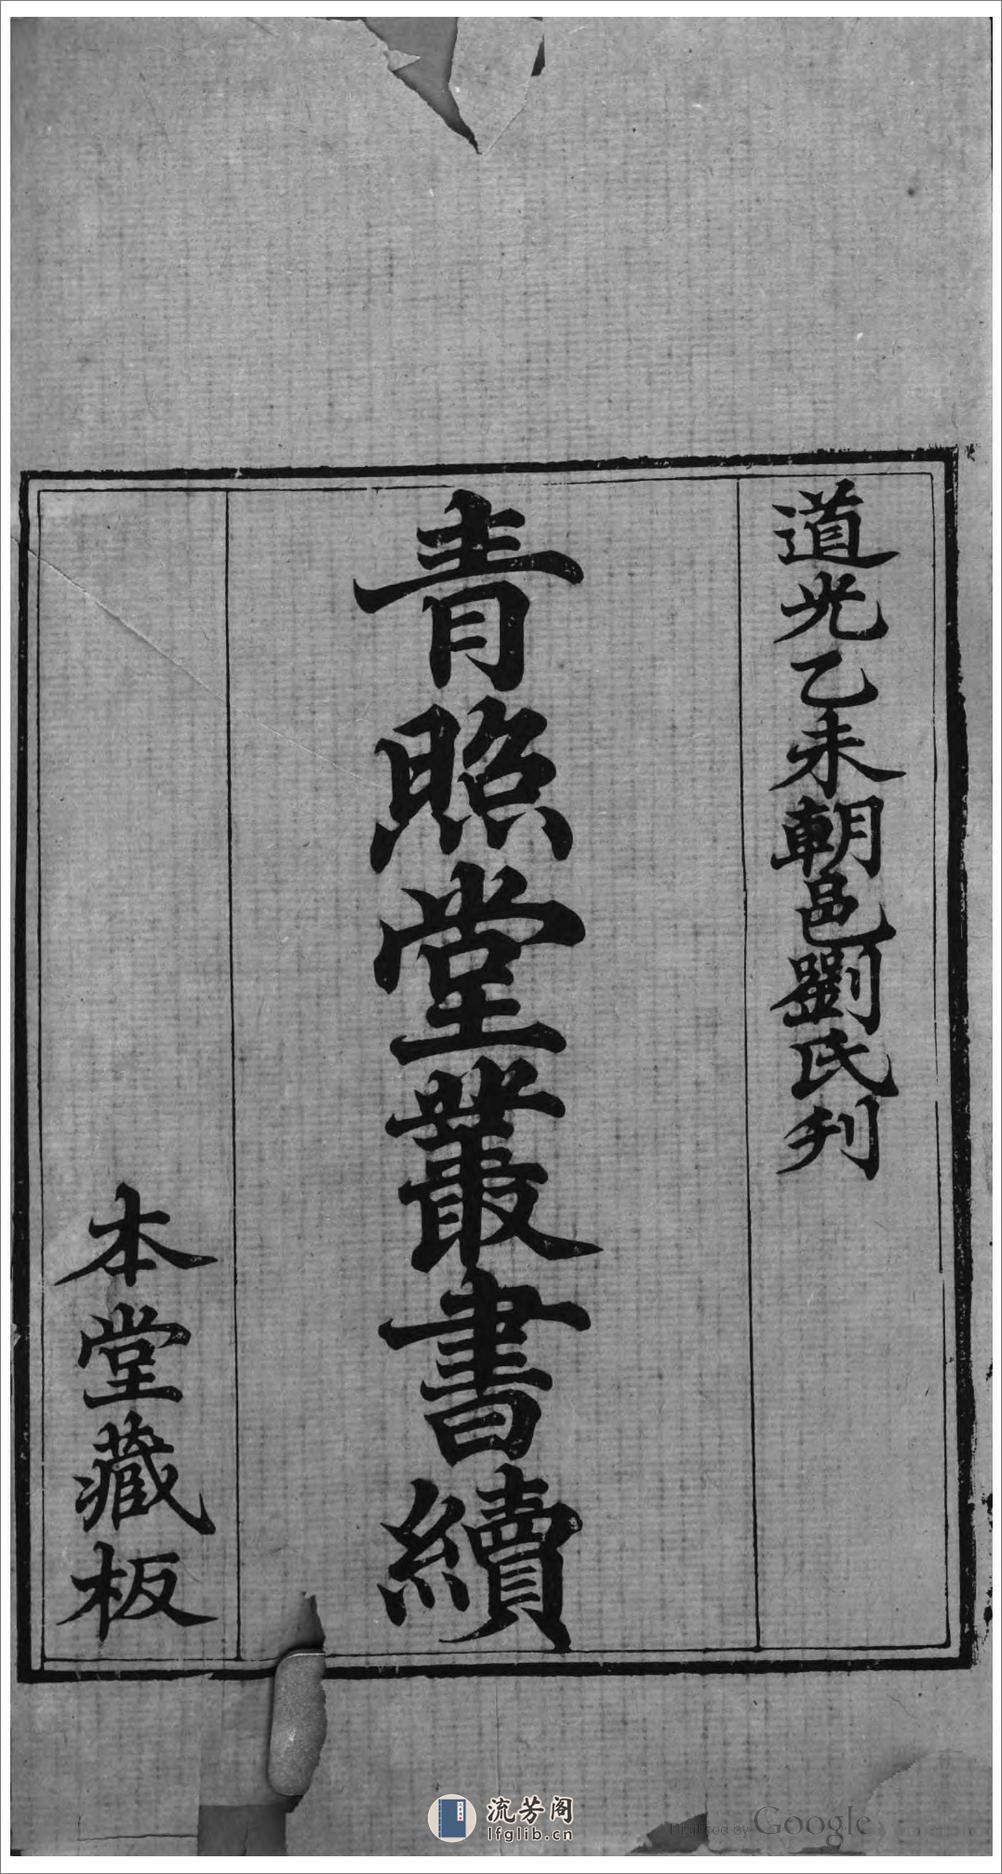 道光乙未朝邑劉氏刋
青照堂叢書續
本堂藏板
流芳阁
lfglib.cn
Digitized by Google